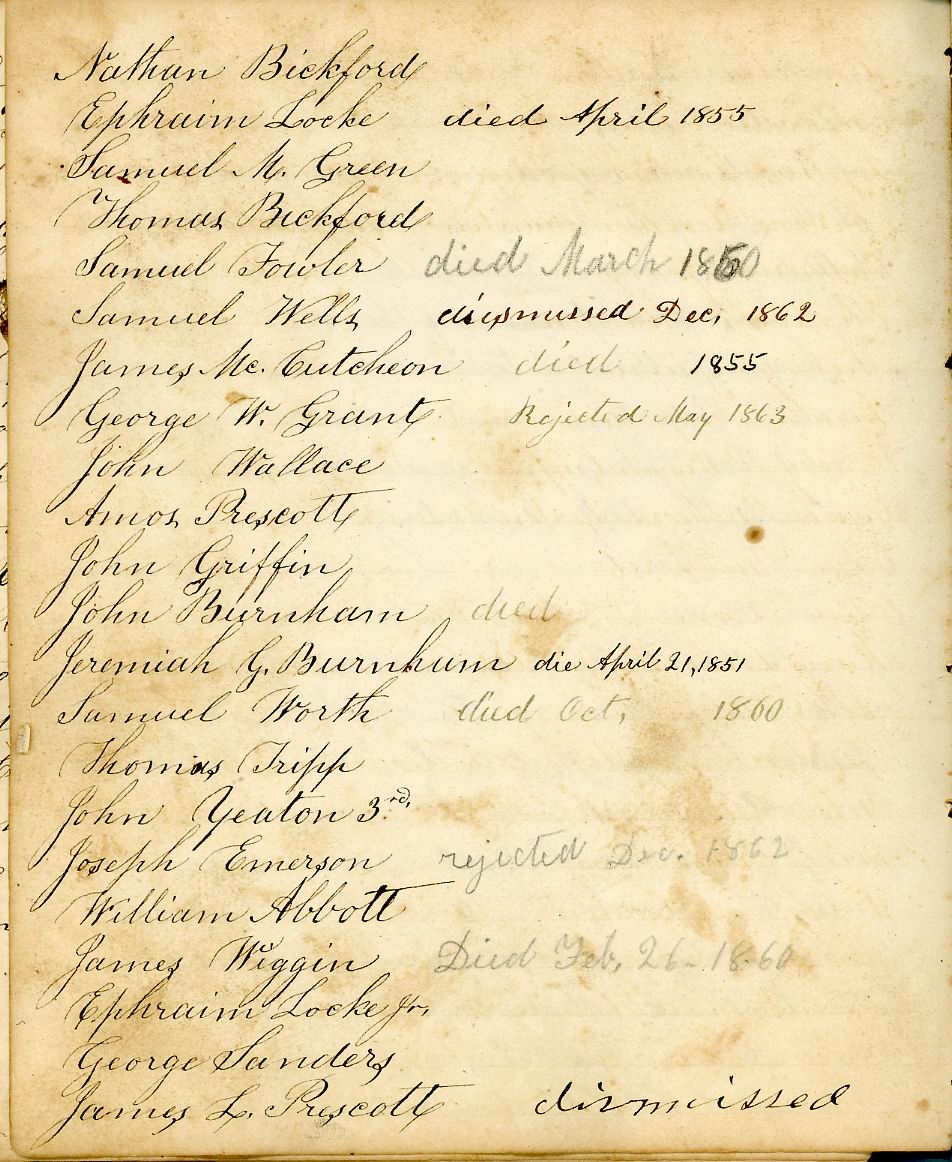 Nathan Bickford
Ephraim Locke died April 1855
Samuel M. Green
Thomas Bickford
Samuel Fowler died March 1860
Samuel Wells dismissed Dec. 1862
James Mc. Cutcheon died 1855
George W. Grant Rejected May 1863
John Wallace
Amos Prescott
John Griffin
John Burnham died
Jeremiah G. Burnham die April 21, 1851
Samuel Worth died Oct. 1860
Thomas Tripp
John Yeaton 3rd.
Joseph Emerson rejected Dec. 1862
William Abbott
James Wiggin Died Feb. 26 - 1860
Ephraim Locke Jr.
George Sanders
James L. Prescott dismissed